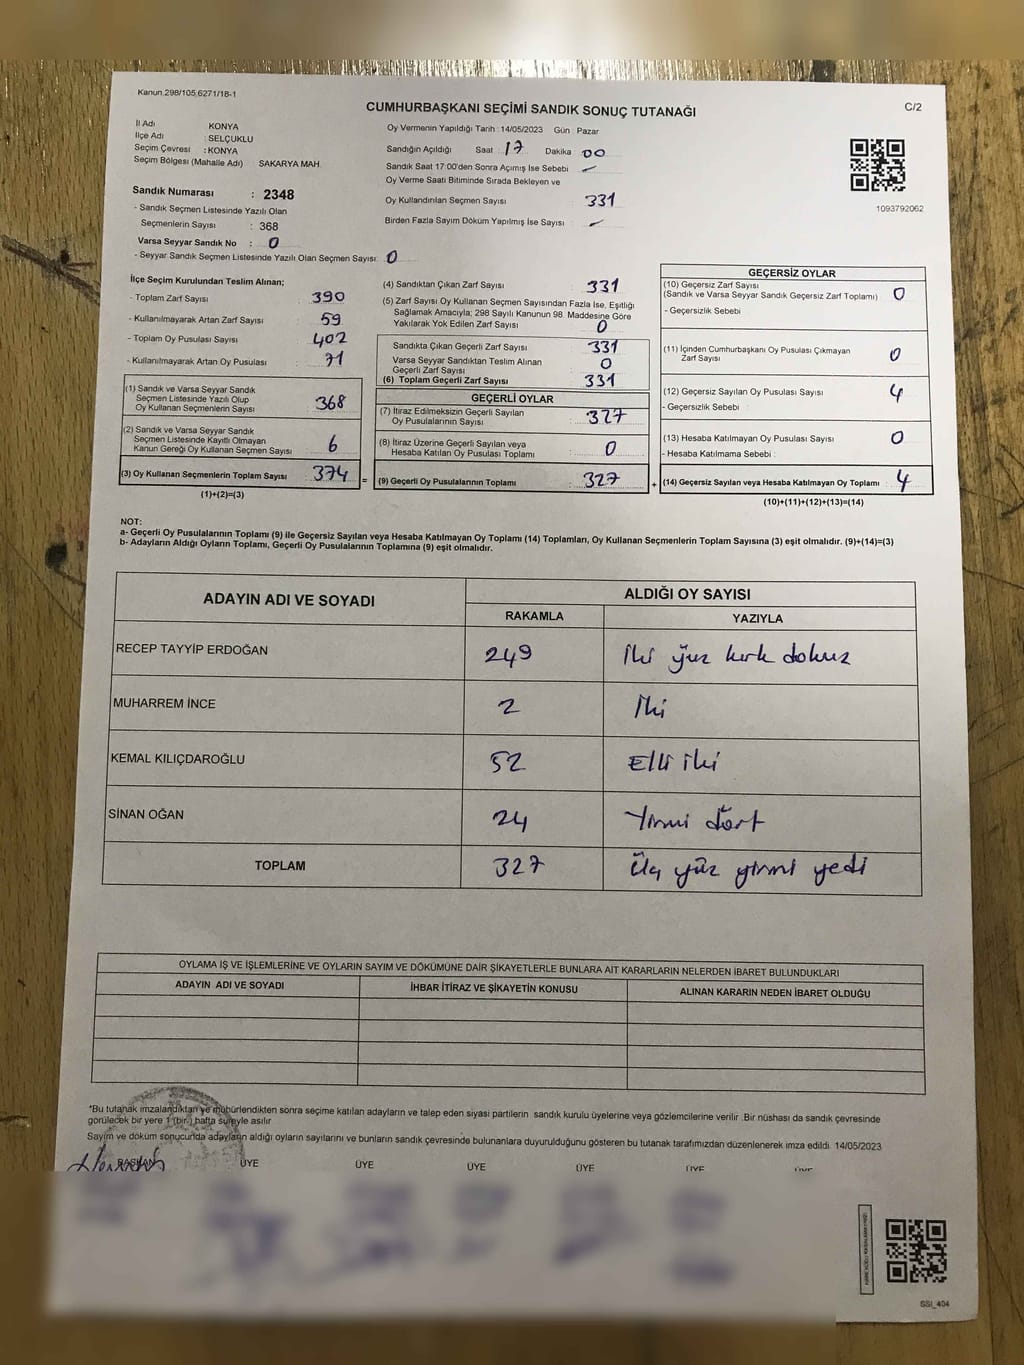 Kanun.298/105,6271/18-1
C/2
CUMHURBAŞKANI SEÇİMİ SANDIK SONUÇ TUTANAĞI
İl Adı KONYA
İlçe Adı : SELÇUKLU
Seçim Çevresi : KONYA
Seçim Bölgesi (Mahalle Adı) : SAKARYA MAH.
Sandık Numarası : 2348
- Sandık Seçmen Listesinde Yazılı Olan
Seçmenlerin Sayısı : 368
Varsa Seyyar Sandık No : 0
- Seyyar Sandık Seçmen Listesinde Yazılı Olan Seçmen Sayısı: 0
Oy Vermenin Yapıldığı Tarih : 14/05/2023 Gün : Pazar
Sandığın Açıldığı Saat : 17 Dakika 00
Sandık Saat 17:00'den Sonra Açımış İse Sebebi
Oy Verme Saati Bitiminde Sırada Bekleyen ve
Oy Kullandırılan Seçmen Sayısı 331
Birden Fazla Sayım Döküm Yapılmış İse Sayısı :
1093792062
İlçe Seçim Kurulundan Teslim Alınan;
- Toplam Zarf Sayısı : 390
- Kullanılmayarak Artan Zarf Sayısı : 59
- Toplam Oy Pusulası Sayısı : 402
- Kullanılmayarak Artan Oy Pusulası : 71
(1) Sandık ve Varsa Seyyar Sandık
Seçmen Listesinde Yazılı Olup
Oy Kullanan Seçmenlerin Sayısı : 368
(2) Sandık ve Varsa Seyyar Sandık
Seçmen Listesinde Kayıtlı Olmayan
Kanun Gereği Oy Kullanan Seçmen Sayısı : 6
(3) Oy Kullanan Seçmenlerin Toplam Sayısı : 374
(1)+(2)=(3)
=
(4) Sandıktan Çıkan Zarf Sayısı : 331
(5) Zarf Sayısı Oy Kullanan Seçmen Sayısından Fazla İse, Eşitliği
Sağlamak Amacıyla; 298 Sayılı Kanunun 98. Maddesine Göre
Yakılarak Yok Edilen Zarf Sayısı : 0
Sandıkta Çıkan Geçerli Zarf Sayısı : 331
Varsa Seyyar Sandıktan Teslim Alınan
Geçerli Zarf Sayısı : 0
(6) Toplam Geçerli Zarf Sayısı : 331
GEÇERLİ OYLAR
(7) İtiraz Edilmeksizin Geçerli Sayılan
Oy Pusulalarının Sayısı : 327
(8) İtiraz Üzerine Geçerli Sayılan veya
Hesaba Katılan Oy Pusulası Toplamı : 0
(9) Geçerli Oy Pusulalarının Toplamı : 327
+
GEÇERSİZ OYLAR
(10) Geçersiz Zarf Sayısı
(Sandık ve Varsa Seyyar Sandık Geçersiz Zarf Toplamı) : 0
- Geçersizlik Sebebi
(11) İçinden Cumhurbaşkanı Oy Pusulası Çıkmayan
Zarf Sayısı : 0
(12) Geçersiz Sayılan Oy Pusulası Sayısı : 4
- Geçersizlik Sebebi :
(13) Hesaba Katılmayan Oy Pusulası Sayısı : 0
- Hesaba Katılmama Sebebi :
(14) Geçersiz Sayılan veya Hesaba Katılmayan Oy Toplamı : 4
(10)+(11)+(12)+(13)=(14)
NOT:
a- Geçerli Oy Pusulalarının Toplamı (9) ile Geçersiz Sayılan veya Hesaba Katılmayan Oy Toplamı (14) Toplamları, Oy Kullanan Seçmenlerin Toplam Sayısına (3) eşit olmalıdır. (9)+(14)=(3)
b- Adayların Aldığı Oyların Toplamı, Geçerli Oy Pusulalarının Toplamına (9) eşit olmalıdır.
ADAYIN ADI VE SOYADI ALDIĞI OY SAYISI
RAKAMLA YAZIYLA
RECEP TAYYİP ERDOĞAN 249 İki yüz kırk dokuz
MUHARREM İNCE 2 İki
KEMAL KILIÇDAROĞLU 52 Elli iki
SİNAN OĞAN 24 Yirmi dört
TOPLAM 327 Üç yüz yirmi yedi
OYLAMA İŞ VE İŞLEMLERİNE VE OYLARIN SAYIM VE DÖKÜMÜNE DAİR ŞİKAYETLERLE BUNLARA AİT KARARLARIN NELERDEN İBARET BULUNDUKLARI
ADAYIN ADI VE SOYADI İHBAR İTİRAZ VE ŞİKAYETİN KONUSU ALINAN KARARIN NEDEN İBARET OLDUĞU
*Bu tutanak imzalandıktan ve mühürlendikten sonra seçime katılan adayların ve talep eden siyasi partilerin sandık kurulu üyelerine veya gözlemcilerine verilir. Bir nüshası da sandık çevresinde
görülecek bir yere 1 (bir.) hafta süreyle asılır
Sayım ve döküm sonucunda adayların aldığı oyların sayılarını ve bunların sandık çevresinde bulunanlara duyurulduğunu gösteren bu tutanak tarafımızdan düzenlenerek imza edildi. 14/05/2023
BAŞKAN ÜYE ÜYE ÜYE ÜYE ÜYE ÜYE
SSI_404